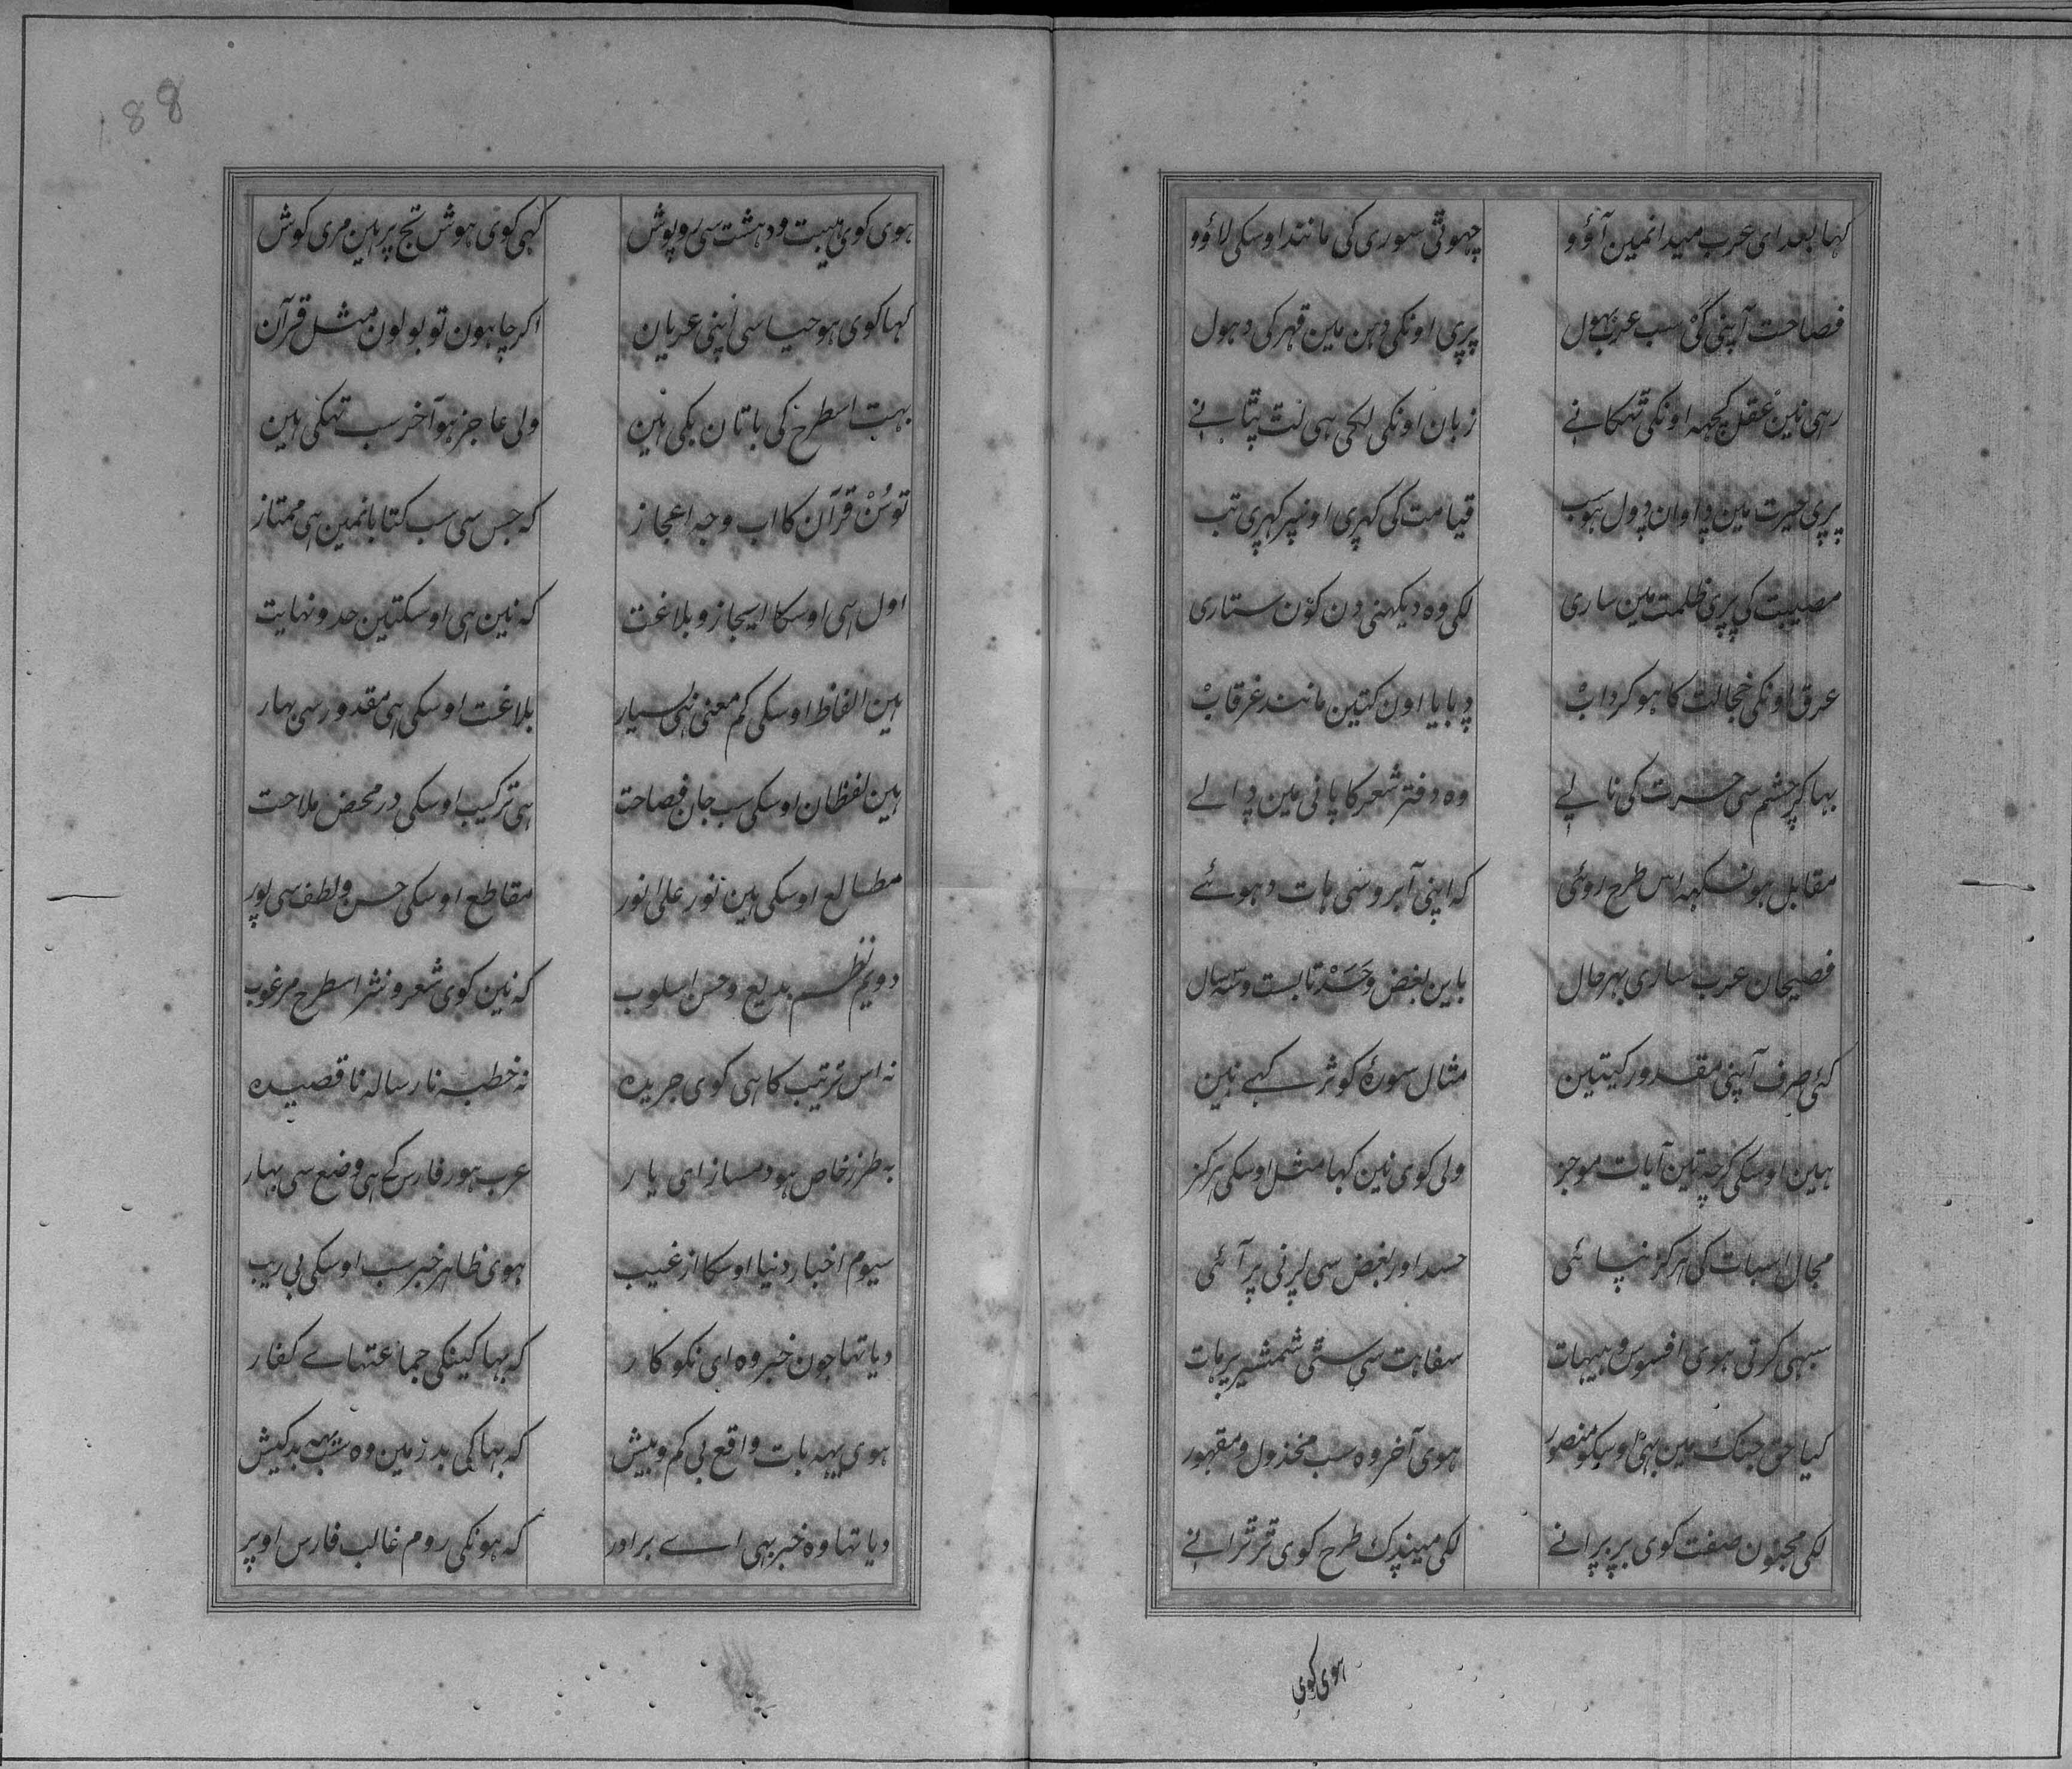 کہا بعد ای عرب میدانمین آؤو چھوتی سوری کی مانند اوسکی لاؤو
فصاحت آپنی کئ سب عرب بھول پری اونکی دہن مین قہر کی دہول
رہی نین عقل کچھہ اونکی تہکانے زبان اونکی لکی ہی لت پتانے
پری حیرت مین اوان دول ہو سب قیامت کی کہری اونپر کہری تب
مصیبت کی پری ظلمت مین ساری لکی وہ دیکھنی دن کون ستاری
عرق اونکی خجالت کا ہو کرداب دبایا اون کتین مانند غرقاب
بہا کر چشم سی حسرت کی نالے وہ دفتر شعر کا پانی مین دالے
مقابل ہو نسکہہ اس طرح روئی کہ اپنی آبرو سی ہات دہوئے
فصیحان عرب ساری بہر حال باین بغض و حسد تا بست و سہ سال
کئی صرف آپنی مقدور کیتین مثال سورۂ کوثر کہے نین
ہین اوسکی کرچہ تین آیات موجز ولی کوی نین کہا مثل اوسکی ہرکز
مجال اسبات کی ہرکز نپائی حسد اور بغض سی لرنی پر آئی
سبھی کرتی ہوی افسوس و ہیہات سفاہت سی ستی شمشیر پر ہات
کیا حق جنک مین بھی اوسکو منصور ہوی آخر وہ سب مخذول و مقہور
لکی مجنون صفت کوی برپرانے لکی میندک طرح کوی ترترانے
ہوی کوی
188
ہوی کوی ہیبت و دہشت سی روپوش کہی کوی ہوش تج پر ہین مری کوش
کہا کوی ہو حیا سی اپنی عریان اکر چاہون تو بولون مثل قرآن
بہت اسطرح کی باتان بکی ہین ولی عاجز ہو آخر سب تہکی ہین
تو سُنْ قرآن کا اب وجہ اعجاز کہ جس سی سب کتابانمین ہی ممتاز
اول ہی اوسکا ایجاز و بلاغت کہ نین ہی اوسکتین حد و نہایت
ہین الفاظ اوسکی کم معنی ہی بسیار بلاغت اوسکی ہی مقدور سی بہار
ہین لفظان اوسکی سب جان فصاحت ہی ترکیب اوسکی در محض ملاحت
مطالع اوسکی ہین نور علیٰ نور مقاطع اوسکی حسن و لطف سی پور
دویم نظم بدیع و حسن اسلوب کہ نین کوی شعر و نثر اسطرح مرغوب
نہ اس ترتیب کا ہی کوی جریدہ نہ خطبہ نا رسالہ نا قصیدہ
بہ طرز خاص ہو دمساز ای یار عرب ہور فارس کے ہی وضع سی بہار
سیوم اخبار دنیا اوسکا از غیب ہوی ظاہر خبر سب اوسکی بی ریب
دیا تہا جون خبر وہ ای نکو کار کہ بہاکینکی جماعتہاے کفار
ہوی یہہ بات واقع بی کم و بیش کہ بہاکی بدر مین وہ سب بد کیش
دیا تہا وہ خبر بہی اے برادر کہ ہونکی روم غالب فارس اوپر